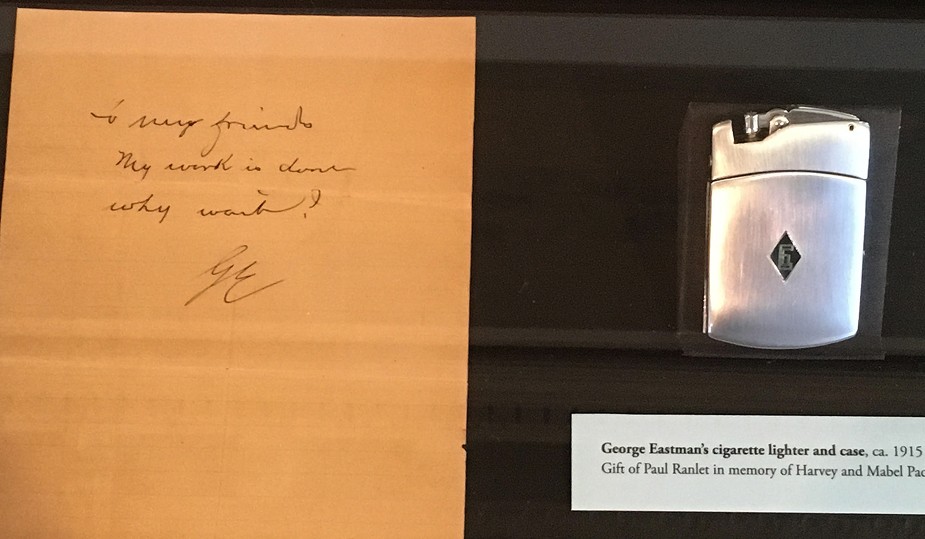 To my friends
My work is done
why wait?
GE
E
George Eastman's cigarette lighter and case, ca. 1915
Gift of Paul Ranlet in memory of Harvey and Mabel